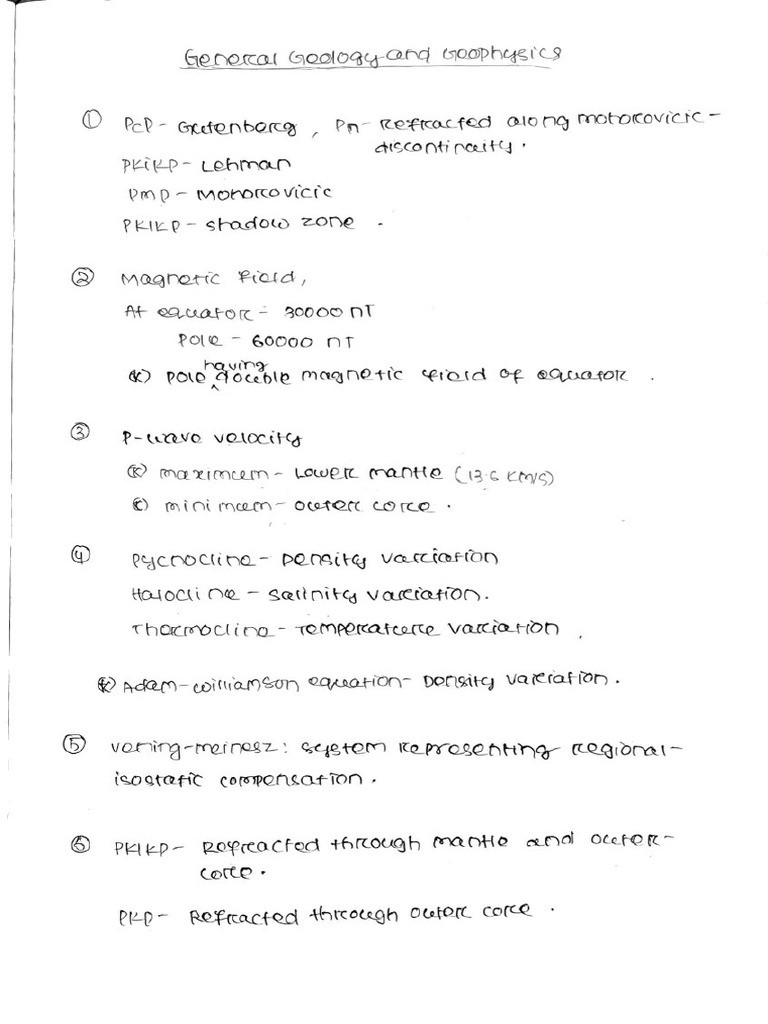 General Geology and Geophysics
① PcP - Gutenberg, Pn - Refracted along mohorovicic -
discontinuity.
PKiKP - Lehman
PmP - Mohorovicic
PKIKP - shadow zone.
② Magnetic field,
At equator - 30000 nT
Pole - 60000 nT
having
(*) Pole double magnetic field of equator.
③ P-wave velocity
(*) maximum - Lower mantle (13.6 KM/S)
(*) minimum - outer core.
④ Pycnocline - Density variation
Halocline - Salinity variation.
Thermocline - Temperature variation.
(*) Adam-williamson equation - Density variation.
⑤ Vening-meinesz: system representing regional -
isostatic compensation.
⑥ PKIKP - Refracted through mantle and outer -
core.
PKP - Refracted through outer core.